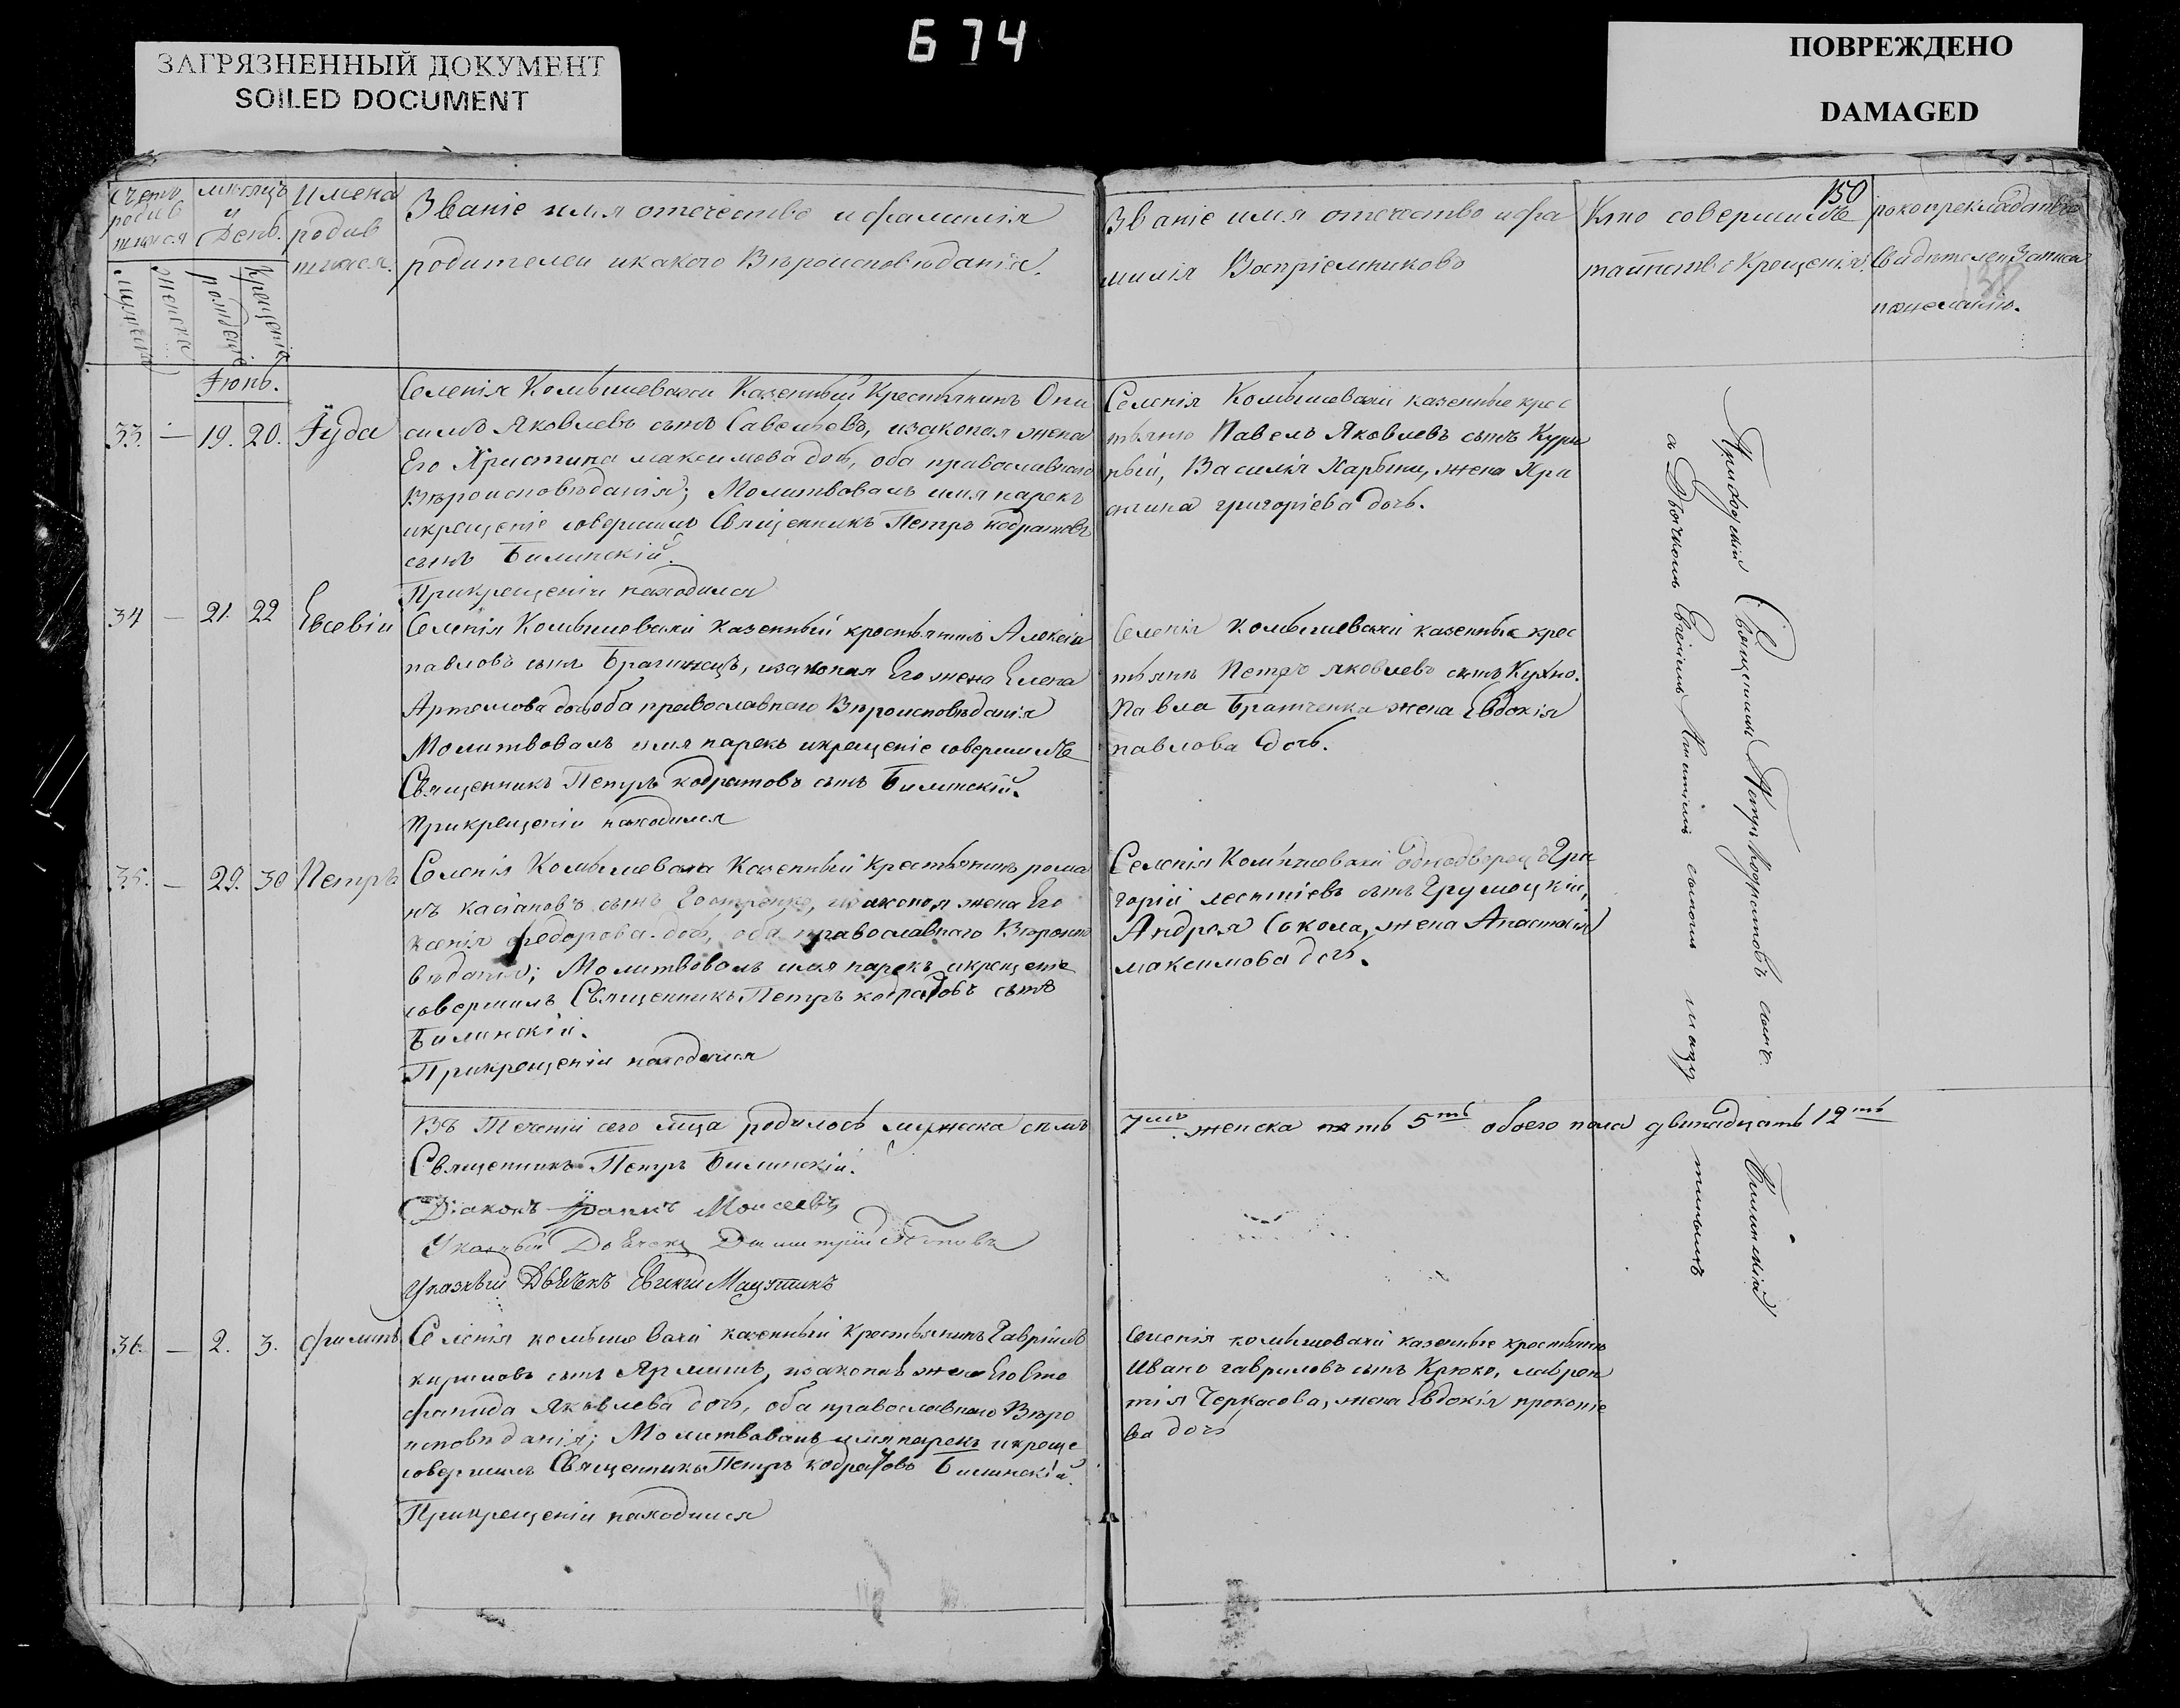 674
ЗАГРЯЗНЕННЫЙ ДОКУМЕНТ
SOILED DOCUMENT
ПОВРЕЖДЕНО
DAMAGED
150
Счетъ родив шихся
мужеска
женска
мѣсяцъ и День.
рожденіе
Крещеніе
Имена родив шихся.
Званіе имя отечество и фамилія
родителей икакого Вѣроисповѣданія.
Званіе имя отечество ифа
милія Воспріемниковъ
Кто совершилъ
таинство Крещенія.
Свидѣтелей Записи
пожеланію.
Іюнь.
33. — 19. 20. Іуда
Селенія Комышевахи Казенный Крестьянинъ Они
симъ Яковлевъ сынъ Савельевъ, изаконая жена
Его Христина максимова доч, оба православнаго
Вѣроисповѣданія; Молитвовалъ имя нарекъ
икрещеніе совершилъ Священникъ Петръ кодратовъ
сынъ Билинскій.
Прикрещеніи находился
Селенія Комышевахи казенные крес
тьяне Павелъ Яковлевъ сынъ
Василія жена Хри
стина григоріева дочь.
34 — 21. 22 Евсевіи
Селенія Комышевахи казенный крестьянинъ Алексіи
павловъ сынъ изаконая Его жена Елена
Артемова доч оба православнаго Вѣроисповѣданія
Молитвовалъ имя нарекъ икрещеніе совершилъ
Священникъ Петръ кодратовъ сынъ Билинскій.
Прикрещеніи находился
Селенія Комышевахи казенные крес
тьяне Петръ яковлевъ сынъ Кухно.
Павла Братченка жена Евдокія
павлова дочь.
35. — 29. 30 Петръ
Селенія Комышеваха Казенный Крестьянинъ рома
нъ касіановъ сынъ изаконая жена Его
ксенія федорова доч, оба православнаго Вѣроиспо
вѣданія; Молитвовалъ имя нарекъ икрещеніе
совершилъ Священникъ Петръ кодратовъ сынъ
Билинскій.
Прикрещеніи находился
Селенія Комышевахи однодворецъ Гри
горій сынъ
Андрея Сокола, жена Анастасія
максимова доч.
Приходскій Священникъ Петръ Кодратовъ сынъ Билинскій
а Дьячкомъ Евгеніемъ
ВЪ Теченіи сего мѣца родилось мужеска семъ 7мъ женска пять 5ть обоего пола двенадцать 12ть
Священникъ Петръ Билинскій.
Діаконъ Моисеевъ
Указный Дьячекъ Димитрій
Указный Дьячекъ Евгеній
36. — 2. 3. филипъ
Селенія комышевахи казенный Крестьянинъ Гавріилъ
кириловъ сынъ изаконая жена Его Сте
фанида Яковлева доч, оба православнаго Вѣро
исповѣданія; Молитвовалъ имя нарекъ икреще
совершилъ Священникъ Петръ кодратовъ Билинскій.
Прикрещеніи находился
Селенія комышевахи казенные крестьяне
Иванъ гавриловъ сынъ Крюко, лаврен
тія Черкасова, жена Евдокія прокопіе
ва доч